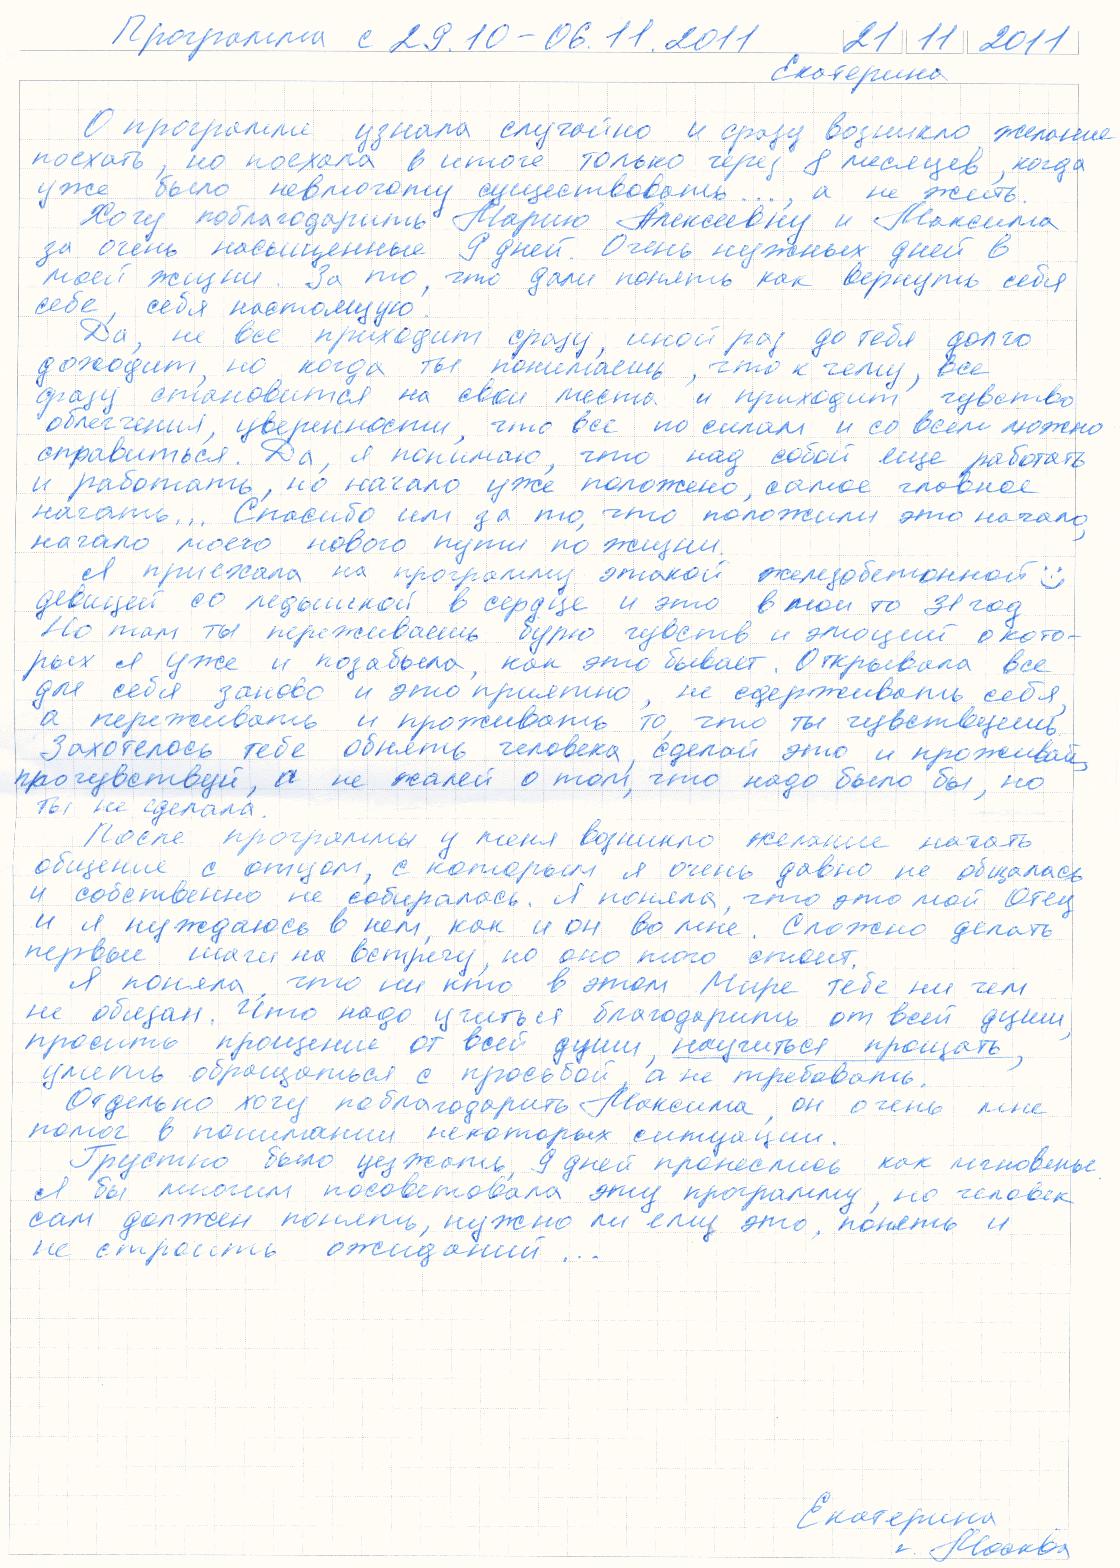 Программа с 29.10 – 06.11.2011 21 11 2011
Екатерина
О программе узнала случайно и сразу возникло желание
поехать, но поехала в итоге только через 8 месяцев, когда
уже было невмоготу существовать..., а не жить.
Хочу поблагодарить Марию Алексеевну и Максима
за очень насыщенные 9 дней. Очень нужных дней в
моей жизни. За то, что дали понять как вернуть себя
себе, себя настоящую.
Да, не все приходит сразу, иной раз до тебя долго
доходит, но когда ты понимаешь, что к чему, все
сразу становится на свои места и приходит чувство
облегчения, уверенности, что все по силам и со всем можно
справиться. Да, я понимаю, что над собой еще работать
и работать, но начало уже положено, самое главное
начать... Спасибо им за то, что положили это начало,
начало моего нового пути по жизни.
Я приехала на программу этакой железобетонной :)
девицей со ледышкой в сердце и это в мои то 31 год
Но там ты переживаешь бурю чувств и эмоций о кото-
рых я уже и позабыла, как это бывает. Открывала все
для себя заново и это приятно, не сдерживать себя,
а переживать и проживать то, что ты чувствуешь.
Захотелось тебе обнять человека, сделай это и проживай,
прочувствуй, а не жалей о том, что надо было бы, но
ты не сделала.
После программы у меня возникло желание начать
общение с отцом, с которым я очень давно не общалась
и собственно не собиралась. Я поняла, что это мой Отец
и я нуждаюсь в нем, как и он во мне. Сложно делать
первые шаги на встречу, но оно того стоит.
Я поняла, что ни кто в этом Мире тебе ни чем
не обязан. Что надо учиться благодарить от всей души,
просить прощение от всей души, научиться прощать,
уметь обращаться с просьбой, а не требовать.
Отдельно хочу поблагодарить Максима, он очень мне
помог в понимании некоторых ситуации.
Грустно было уезжать, 9 дней пронеслись как мгновенье.
Я бы многим посоветовала эту программу, но человек
сам должен понять, нужно ли ему это, понять и
не строить ожиданий...
Екатерина
г. Москва